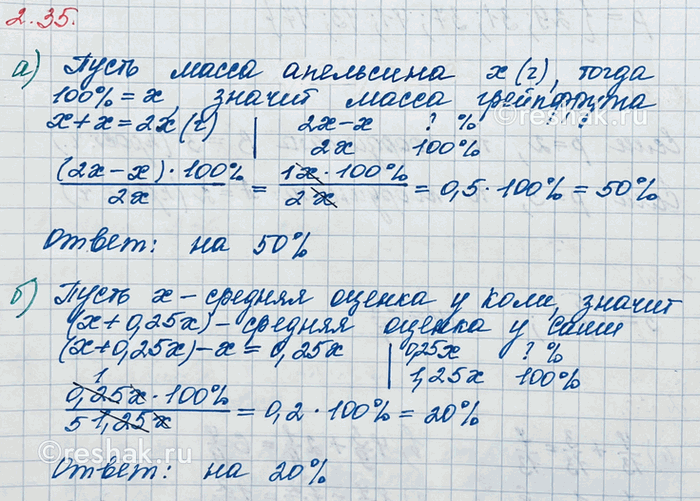 2.35.
а) Пусть масса апельсина x (г), тогда
100% = x, значит масса грейпфрута
x + x = 2x (г) | 2x - x ? %
2x 100%
(2x - x) · 100% / 2x = 1x · 100% / 2x = 0,5 · 100% = 50%
Ответ: на 50%
б) Пусть x - средняя оценка у Коли, значит
(x + 0,25x) - средняя оценка у Саши
(x + 0,25x) - x = 0,25x | 0,25x ? %
1,25x 100%
1
0,25x · 100% / 5 1,25x = 0,2 · 100% = 20%
Ответ: на 20%
©reshak.ru
©reshak.ru